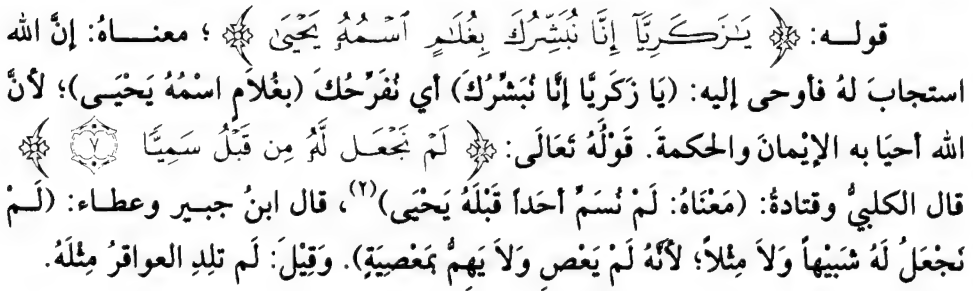 قولـه: ﴿ يَـٰزَكَـرِيَّآ إِنَّا نُبَشِّرُكَ بِغُلَـٰمٍ ٱسْمُهُۥ يَحْيَىٰ ﴾ ؛ معنـاهُ: إنَّ الله
استجابَ لهُ فأوحى إليه: (يَا زَكَرِيَّا إِنَّا نُبَشِّرُكَ) أي نُفَرِّحُكَ (بِغُلاَمٍ اسْمُهُ يَحْيَـى)؛ لأنَّ
الله أحيَا به الإيْمانَ والحكمةَ. قَوْلُهُ تَعَالَى: ﴿ لَمْ نَجْعَـل لَّهُۥ مِن قَبْلُ سَمِيًّا ٧ ﴾
قال الكلبيُّ وقتادةُ: (مَعْنَاهُ: لَمْ نُسَمِّ أحَداً قَبْلَهُ يَحْيَى)(٢)، قال ابنُ جبـير وعطـاء: (لَـمْ
نَجْعَلْ لَهُ شَبيْهاً وَلاَ مِثْلاً؛ لأَنَّهُ لَمْ يَعْصِ وَلاَ يَهِمُّ بمَعْصِيَةٍ). وَقِيْلَ: لَم تلِدِ العواقرُ مِثْلَهُ.